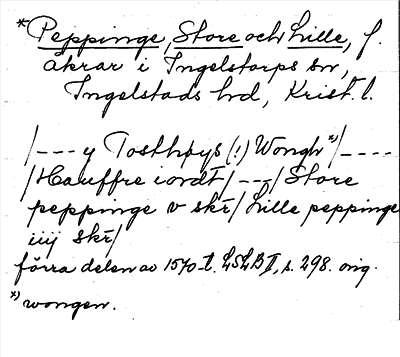 *Peppinge, Store och Lille, f.
åkrar i Ingelstorps sn,
Ingelstads hd, Krist. l.
/--- y Tosthøys (!) Wongh *)/----
/Hauffre iordt/---/Store
peppinge v skr̄/Lille peppinge
iiij skr̄/
förra delen av 1570-t. LSLB II, s. 298. orig.
*) wongen.